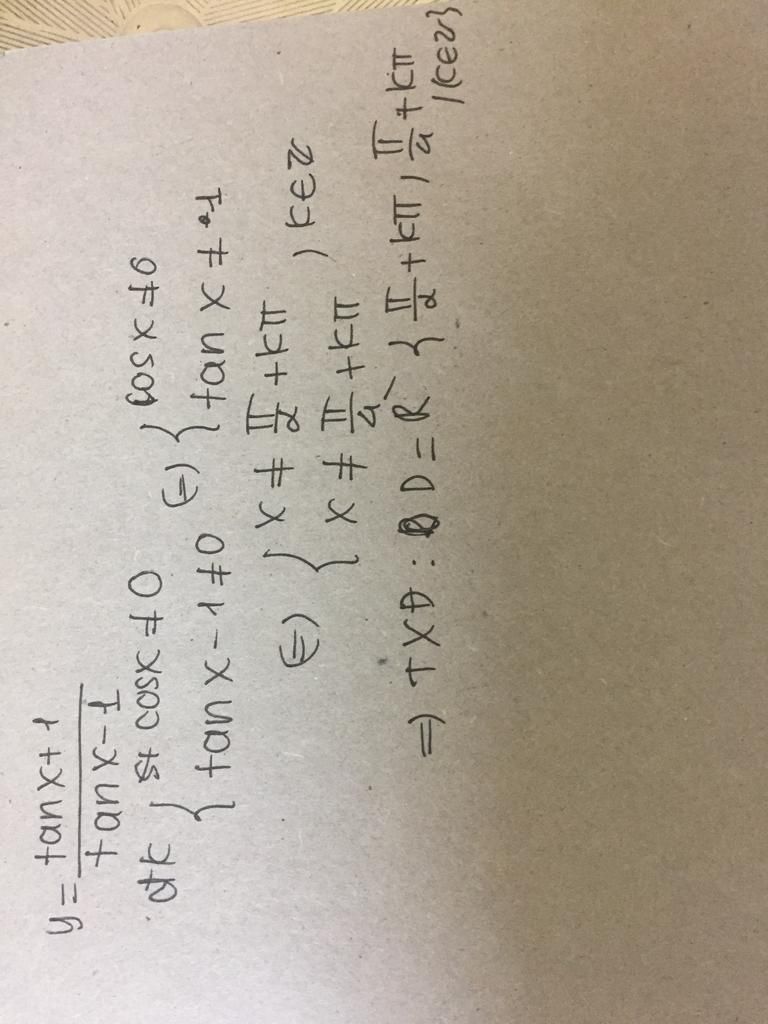 y = tanx+1 / tanx-1
đk { cosx ≠ 0 (=) { cosx ≠ 0
tanx - 1 ≠ 0 tanx ≠ 1
(=) { x ≠ π/2 + kπ
x ≠ π/4 + kπ , k ∈ Z
=) TXĐ: D = R \ { π/2 + kπ, π/4 + kπ
/ k ∈ Z }